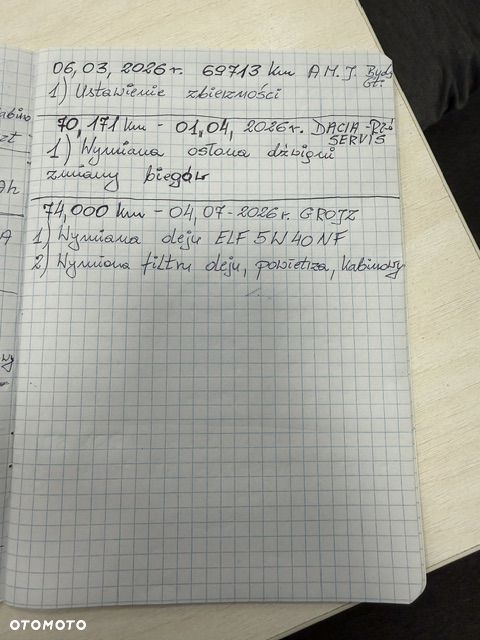 06,03, 2026r. 69713 km A.M.J. Byd
Gt.
1) Ustawienie zbieżności
70,171 km - 01,04, 2026r. DACIA
SERVIS
1) Wymiana osłona dźwigni
zmiany biegów
74,000 km - 04,07-2026r. GROJZ
1) Wymiana oleju ELF 5W40 NF
2) Wymiana filtru oleju, powietrza, kabinowy
OTOMOTO